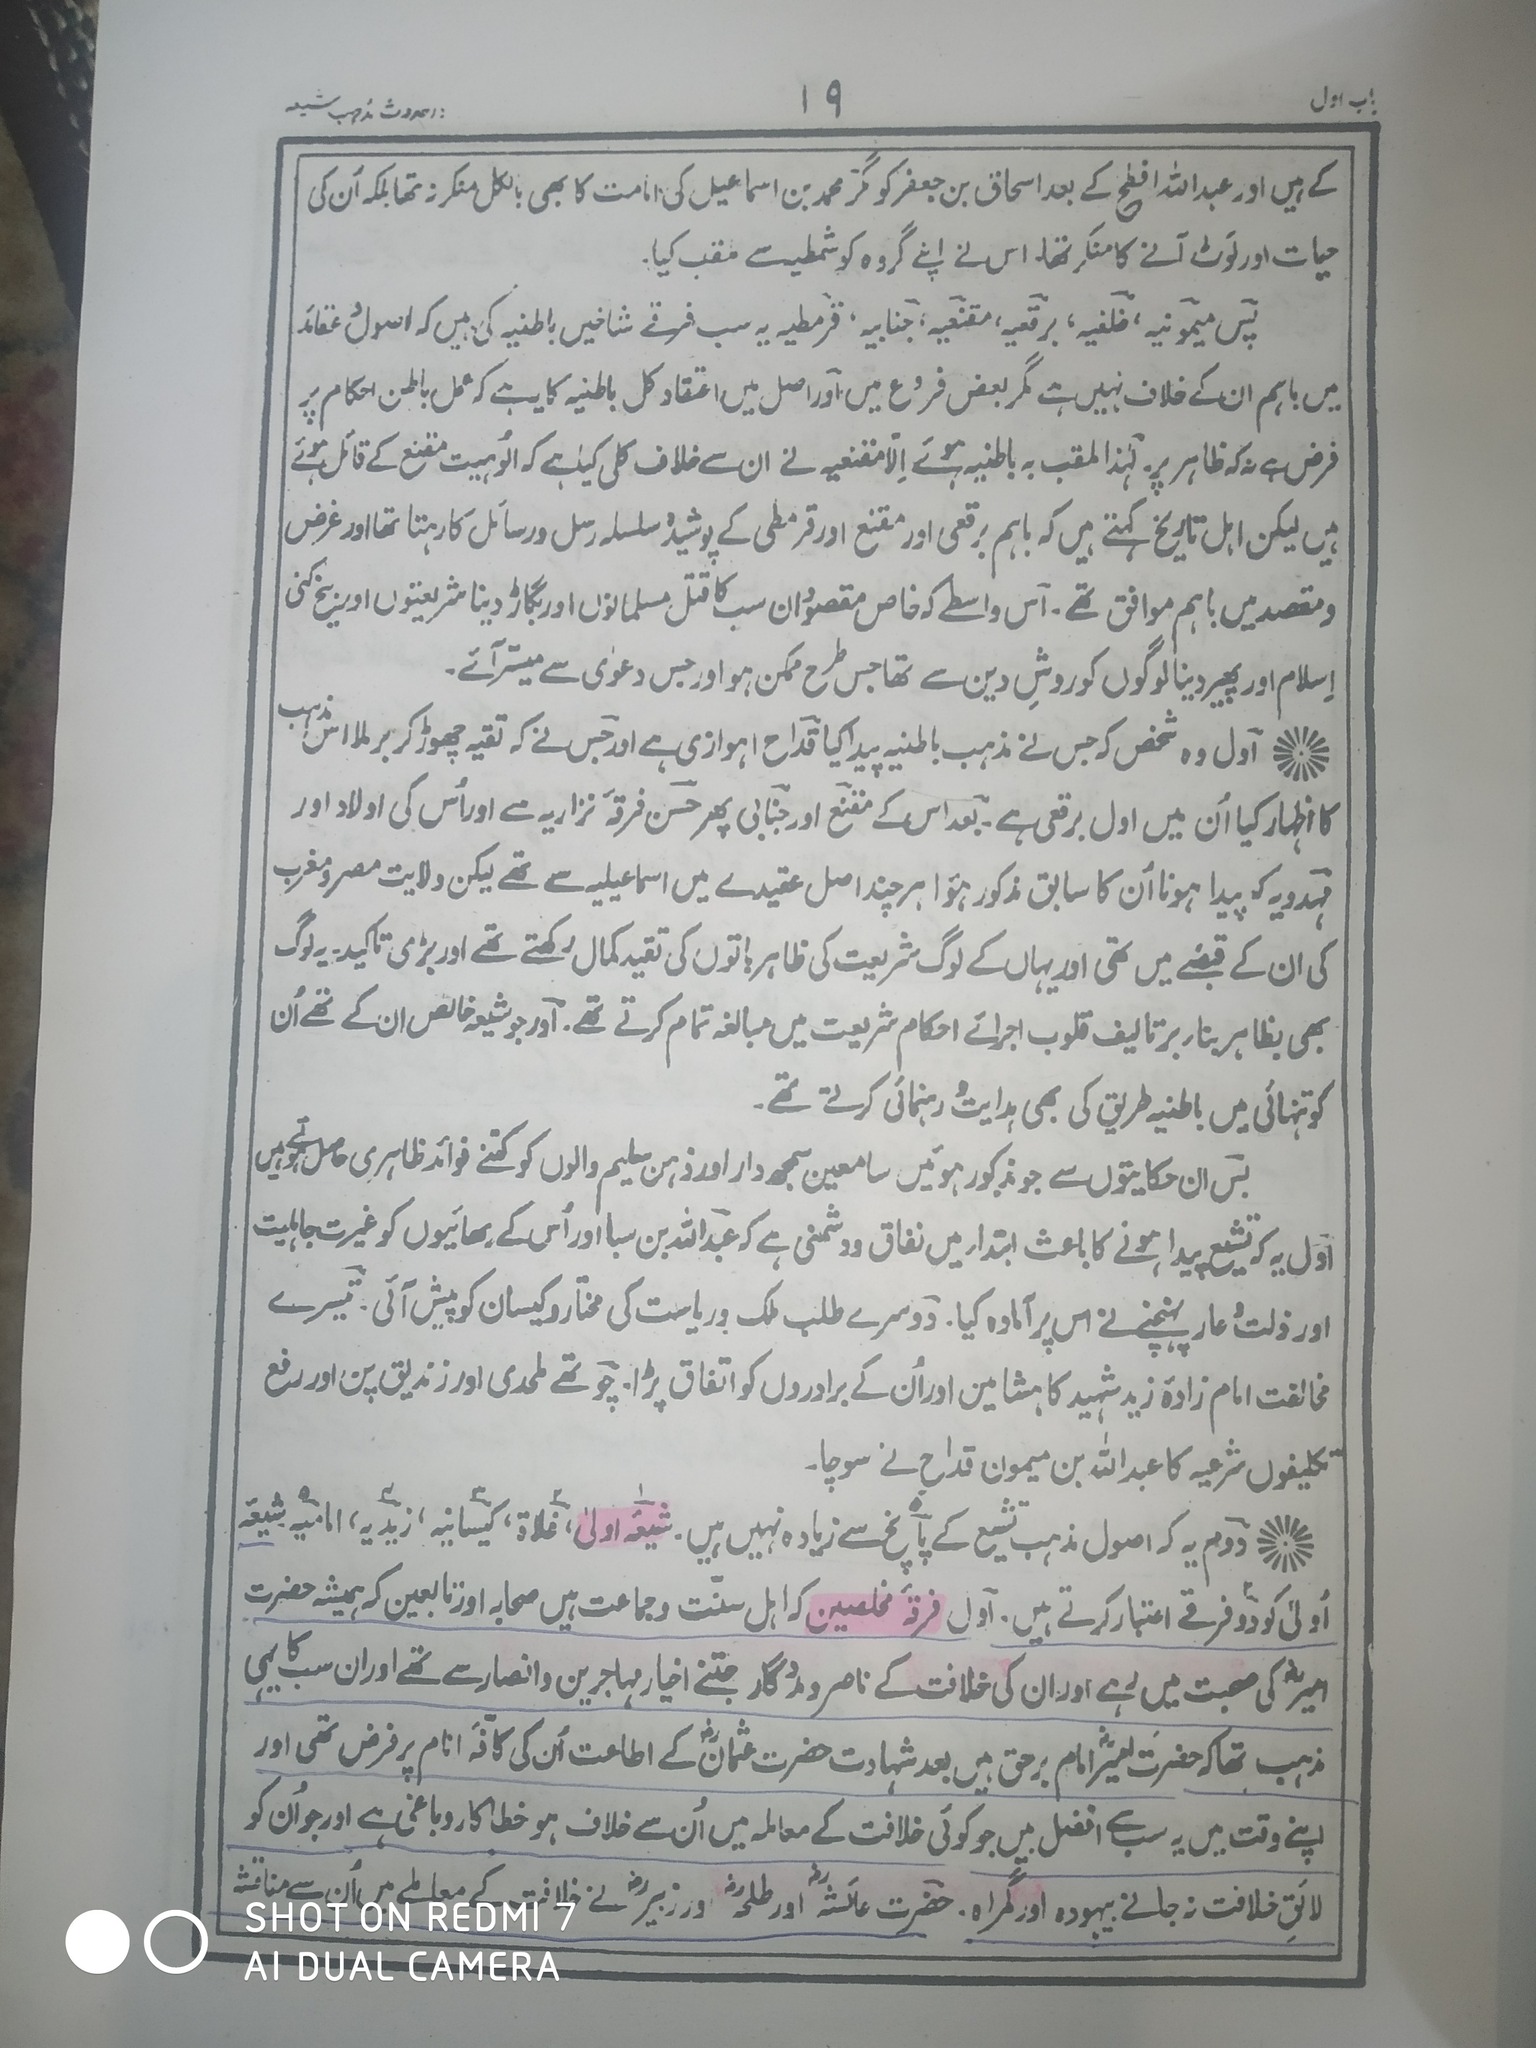 باب اول
۱۹
حدوث مذہب شیعہ
کے ہیں اور عبداللہ افطح کے بعد اسحاق بن جعفر کو مگر محمد بن اسماعیل کی امامت کا بھی بالکل منکر نہ تھا بلکہ اُن کی
حیات اور لَوٹ آنے کا منکر تھا۔ اس نے اپنے گروہ کو شمطیہ سے ملقب کیا۔
پس میمونیہ، خلفیہ، برقعیہ، مقنعیہ، جنابیہ، قرمطیہ یہ سب فرقے شاخیں باطنیہ کی ہیں کہ اصول و عقائد
میں باہم ان کے خلاف نہیں ہے مگر بعض فروع میں اور اصل میں اعتقاد کل باطنیہ کا یہ ہے کہ عمل باطن احکام پر
فرض ہے نہ کہ ظاہر پر۔ لہٰذا ملقب بہ باطنیہ ہوئے اِلّا مقنعیہ نے ان سے خلاف کلی کیا ہے کہ الُوہیت مقنع کے قائل ہوئے
ہیں لیکن اہل تاریخ کہتے ہیں کہ باہم برقعی اور مقنع اور قرمطی کے پوشیدہ سلسلہ رسل و رسائل کا رہتا تھا اور غرض
و مقصد میں باہم موافق تھے۔ اس واسطے کہ خاص مقصود ان سب کا قتل مسلمانوں اور بگاڑ دینا شریعتوں اور بیخ کنی
اِسلام اور پھیر دینا لوگوں کو روشِ دین سے تھا جس طرح ممکن ہو اور جس دعوٰی سے میسّر آئے۔
اوّل وہ شخص کہ جس نے مذہب باطنیہ پیدا کیا قدّاح اہوازی ہے اور جس نے کہ تقیہ چھوڑ کر برملا اس مذہب
کا اظہار کیا اُن میں اول برقعی ہے۔ بعد اس کے مقنع اور جنّابی پھر حسن فرقۂ نزاریہ سے اور اُس کی اولاد اور
مہدویہ کہ پیدا ہونا اُن کا سابق مذکور ہوٗا ہر چند اصل عقیدے میں اسماعیلیہ سے تھے لیکن ولایت مصر و مغرب
کی ان کے قبضے میں تھی اور یہاں کے لوگ شریعت کی ظاہر باتوں کی تقید کمال رکھتے تھے اور بڑی تاکید۔ یہ لوگ
بھی بظاہر بنا بر تالیف قلوب اجرائے احکام شریعت میں مبالغہ تمام کرتے تھے۔ اور جو شیعہ خالص ان کے تھے اُن
کو تنہائی میں باطنیہ طریق کی بھی ہدایت و رہنمائی کرتے تھے۔
بس ان حکایتوں سے جو مذکور ہوئیں سامعین سمجھ دار اور ذہن سلیم والوں کو کتنے فوائد ظاہری حاصل ہوتے ہیں
اوّل یہ کہ تشیع پیدا ہونے کا باعث ابتدا میں نفاق و دشمنی ہے کہ عبداللہ بن سبا اور اُس کے بھائیوں کو غیرت جاہلیت
اور ذلت و عار پہنچنے نے اس پر آمادہ کیا۔ دوسرے طلب ملک و ریاست کی مختار و کیسان کو پیش آئی۔ تیسرے
مخالفت امام زادہ زید شہید کا ہشامین اور اُن کے برادروں کو اتفاق پڑا۔ چوتھے ملحدی اور زندیق پن اور رفع
تکلیفوں شرعیہ کا عبداللہ بن میمون قداح نے سوچا۔
دوم یہ کہ اصول مذہب تشیع کے پانچ سے زیادہ نہیں ہیں۔ شیعۂ اولیٰ، غلاة، کیسانیہ، زیدیہ، امامیہ شیعۂ
اُولیٰ کو دو فرقے اعتبار کرتے ہیں۔ اول فرقۂ مخلصین کہ اہل سنّت و جماعت ہیں صحابہ اور تابعین کہ ہمیشہ حضرت
امیرؓ کی صحبت میں رہے اور ان کی خلافت کے ناصر و مددگار جتنے اخیار مہاجرین و انصار سے تھے اور ان سب کا یہی
مذہب تھا کہ حضرت امیرؓ امام برحق ہیں بعد شہادت حضرت عثمانؓ کے اطاعت اُن کی کافّہ انام پر فرض تھی اور
اپنے وقت میں یہ سب سے افضل ہیں جو کوئی خلافت کے معاملہ میں اُن سے خلاف ہو خطا کار و باغی ہے اور جو اُن کو
لائقِ خلافت نہ جانے بیہودہ اور گمراہ۔ حضرت عائشہؓ اور طلحہؓ اور زبیرؓ نے خلافت کے معاملے میں اُن سے مناقشہ
SHOT ON REDMI 7
AI DUAL CAMERA